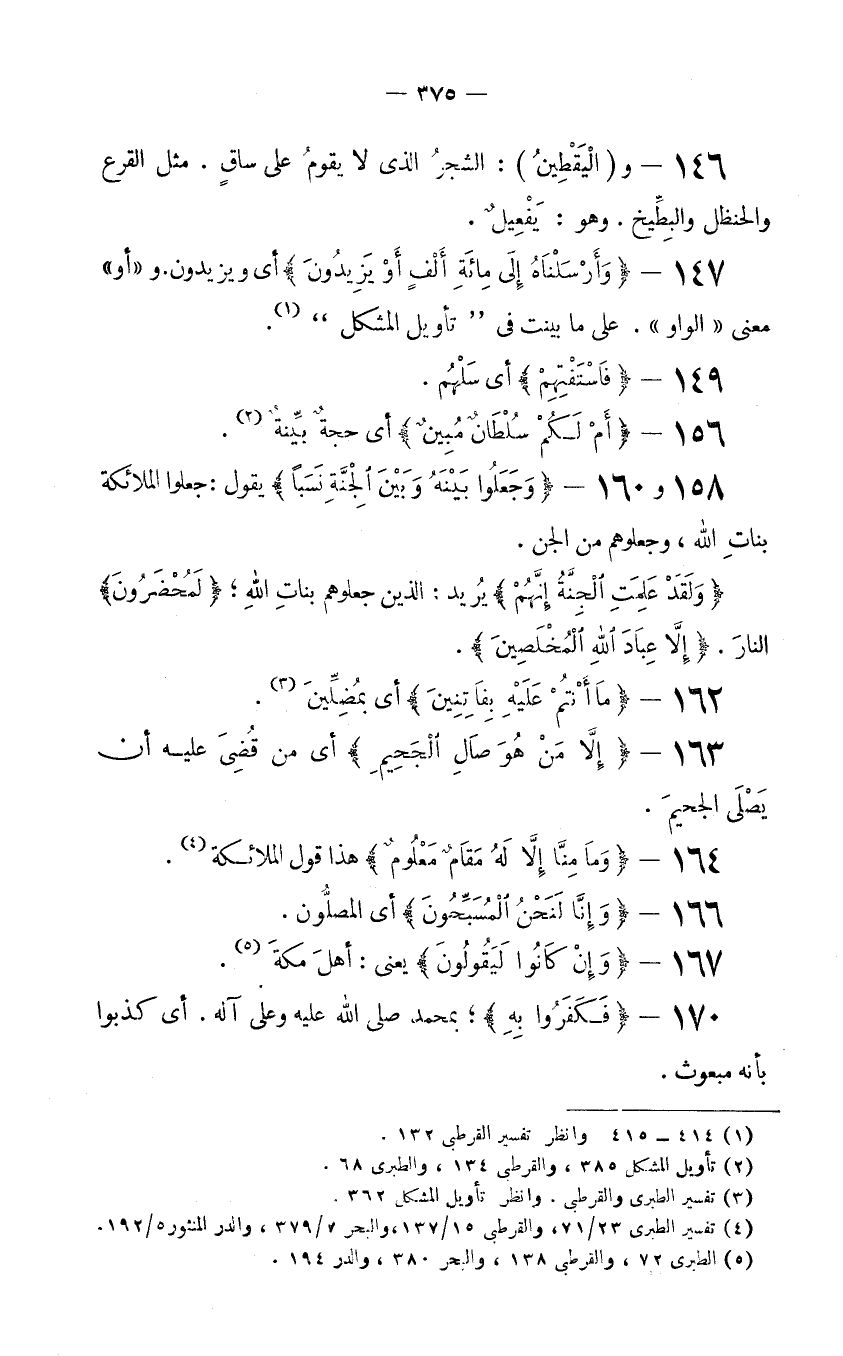 — ٣٧٥ —
١٤٦ — و ( الْيَقْطِينُ ) : الشجرُ الذى لا يقومُ على ساقٍ . مثل القرع
والحنظل والبِطِّيخ . وهو : يَفْعِيلٌ .
١٤٧ — ﴿ وَأَرْسَلْنَاهُ إِلَى مِائَةِ أَلْفٍ أَوْ يَزِيدُونَ ﴾ أى ويزيدون. و «أو»
معنى « الواو » . على ما بينت فى ” تأويل المشكل “ (١).
١٤٩ — ﴿ فَاسْتَفْتِهِمْ ﴾ أى سَلْهُم .
١٥٦ — ﴿ أَمْ لَكُمْ سُلْطَانٌ مُبِينٌ ﴾ أى حجةٌ بيِّنةٌ (٢) .
١٥٨ و ١٦٠ — ﴿ وَجَعَلُوا بَيْنَهُ وَبَيْنَ ٱلْجِنَّةِ نَسَبًا ﴾ يقول : جعلوا الملائكة
بناتِ الله ، وجعلوهم من الجن .
﴿ وَلَقَدْ عَلِمَتِ ٱلْجِنَّةُ إِنَّهُمْ ﴾ يُريد : الذين جعلوهم بناتِ اللهِ ؛ ﴿ لَمُحْضَرُونَ ﴾
النارَ . ﴿ إِلَّا عِبَادَ ٱللهِ ٱلْمُخْلَصِينَ ﴾ .
١٦٢ — ﴿ مَا أَنْتُمْ عَلَيْهِ بِفَاتِنِينَ ﴾ أى بمُضِلِّينَ (٣) .
١٦٣ — ﴿ إِلَّا مَنْ هُوَ صَالِ ٱلْجَحِيمِ ﴾ أى من قُضِىَ عليه أن
يَصْلَى الجحيمَ .
١٦٤ — ﴿ وَمَا مِنَّا إِلَّا لَهُ مَقَامٌ مَعْلُومٌ ﴾ هذا قول الملائكة (٤) .
١٦٦ — ﴿ وَإِنَّا لَنَحْنُ ٱلْمُسَبِّحُونَ ﴾ أى المصلُّون .
١٦٧ — ﴿ وَإِنْ كَانُوا لَيَقُولُونَ ﴾ يعنى : أهلَ مكةَ (٥) .
١٧٠ — ﴿ فَكَفَرُوا بِهِ ﴾ ؛ بمحمد صلى الله عليه وعلى آله . أى كذبوا
بأنه مبعوث .
(١) ٤١٤ – ٤١٥ وانظر تفسير القرطبى ١٣٢ .
(٢) تأويل المشكل ٣٨٥ ، والقرطبى ١٣٤ ، والطبرى ٦٨ .
(٣) تفسير الطبرى والقرطبى . وانظر تأويل المشكل ٣٦٢ .
(٤) تفسير الطبرى ٧١/٢٣، والقرطبى ١٣٧/١٥، والبحر ٣٧٩/٧ ، والدر المنثور ١٩٢/٥.
(٥) الطبرى ٧٢ ، والقرطبى ١٣٨ ، والبحر ٣٨٠ ، والدر ١٩٤ .